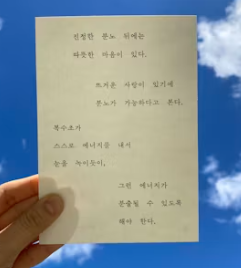 진정한 분노 뒤에는
따뜻한 마음이 있다.
뜨거운 사랑이 있기에
분노가 가능하다고 본다.
복수초가
스스로 에너지를 내서
눈을 녹이듯이.
그런 에너지가
분출될 수 있도록
해야 한다.